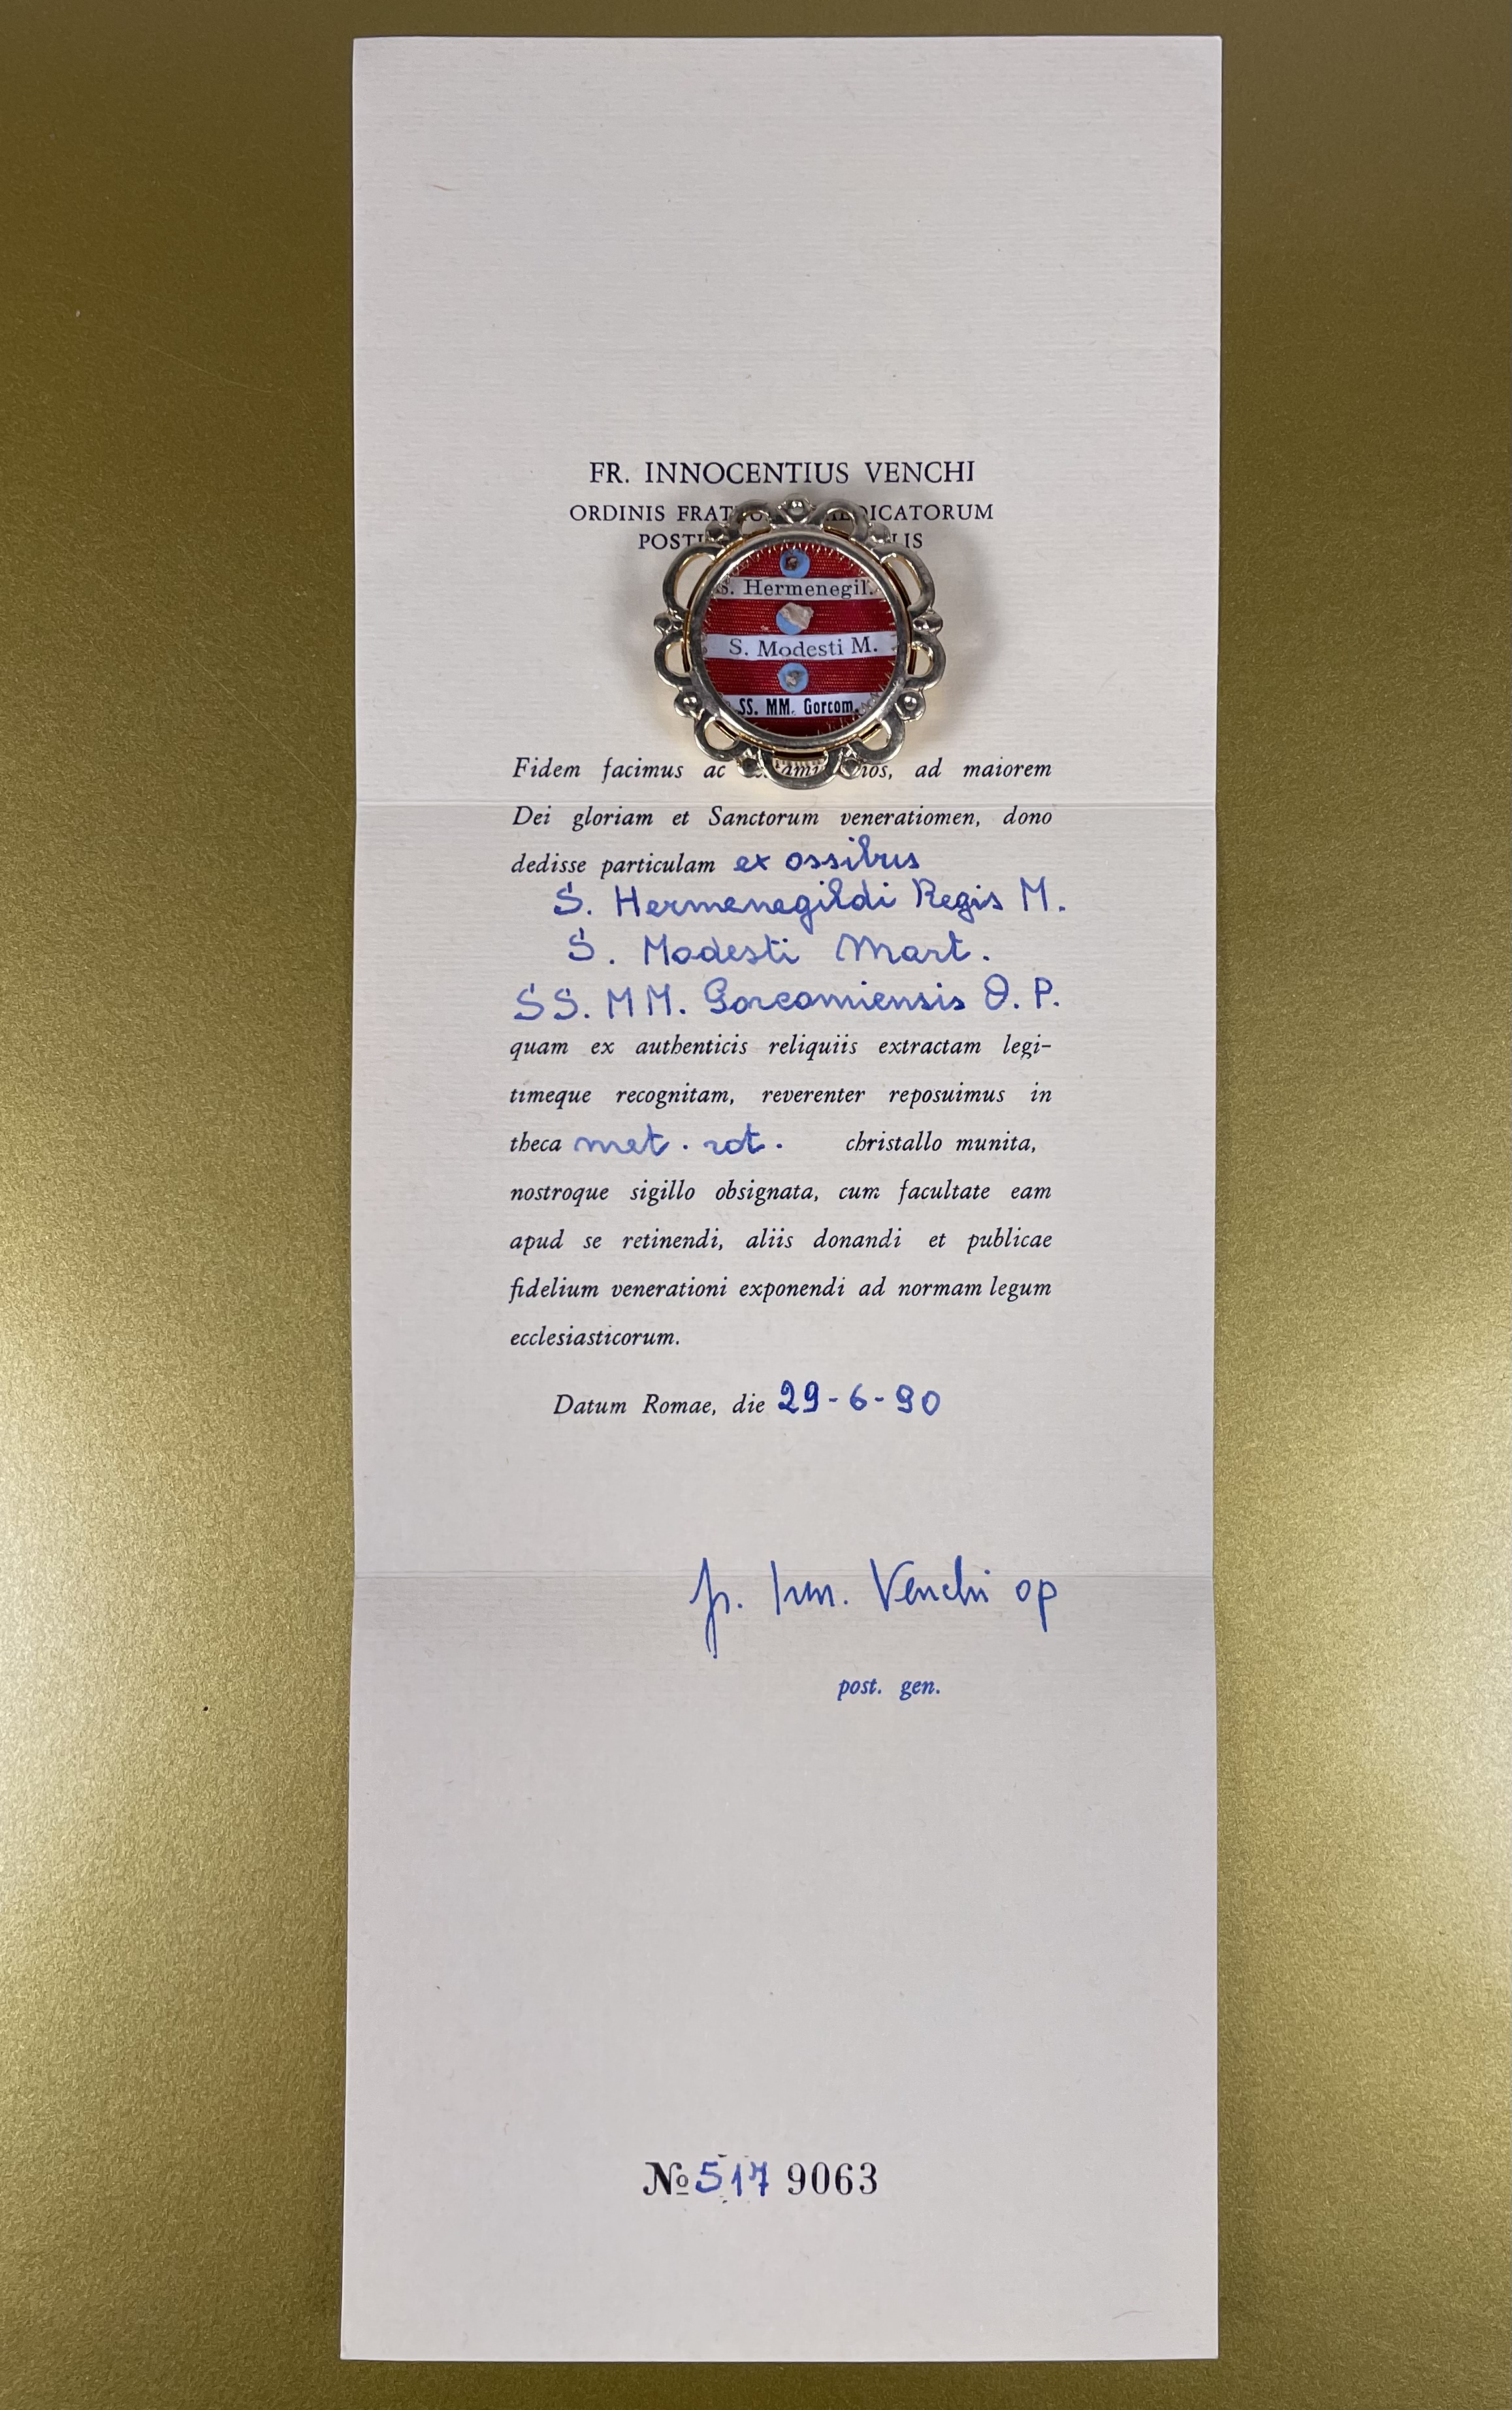 FR. INNOCENTIUS VENCHI
ORDINIS
Fidem facimus ac ad maiorem
Dei gloriam et Sanctorum veneratiomen, dono
dedisse particulam ex ossibus
S. Hermenegildi Regis M.
S. Modesti Mart.
SS. MM. Gorcomiensis O. P.
quam ex authenticis reliquiis extractam legi-
timeque recognitam, reverenter reposuimus in
theca met. rot. christallo munita,
nostroque sigillo obsignata, cum facultate eam
apud se retinendi, aliis donandi et publicae
fidelium venerationi exponendi ad normam legum
ecclesiasticorum.
Datum Romae, die 29-6-90
fr. Inn. Venchi op
post. gen.
№ 517 9063
S. Hermenegil.
S. Modesti M.
SS. MM. Gorcom.